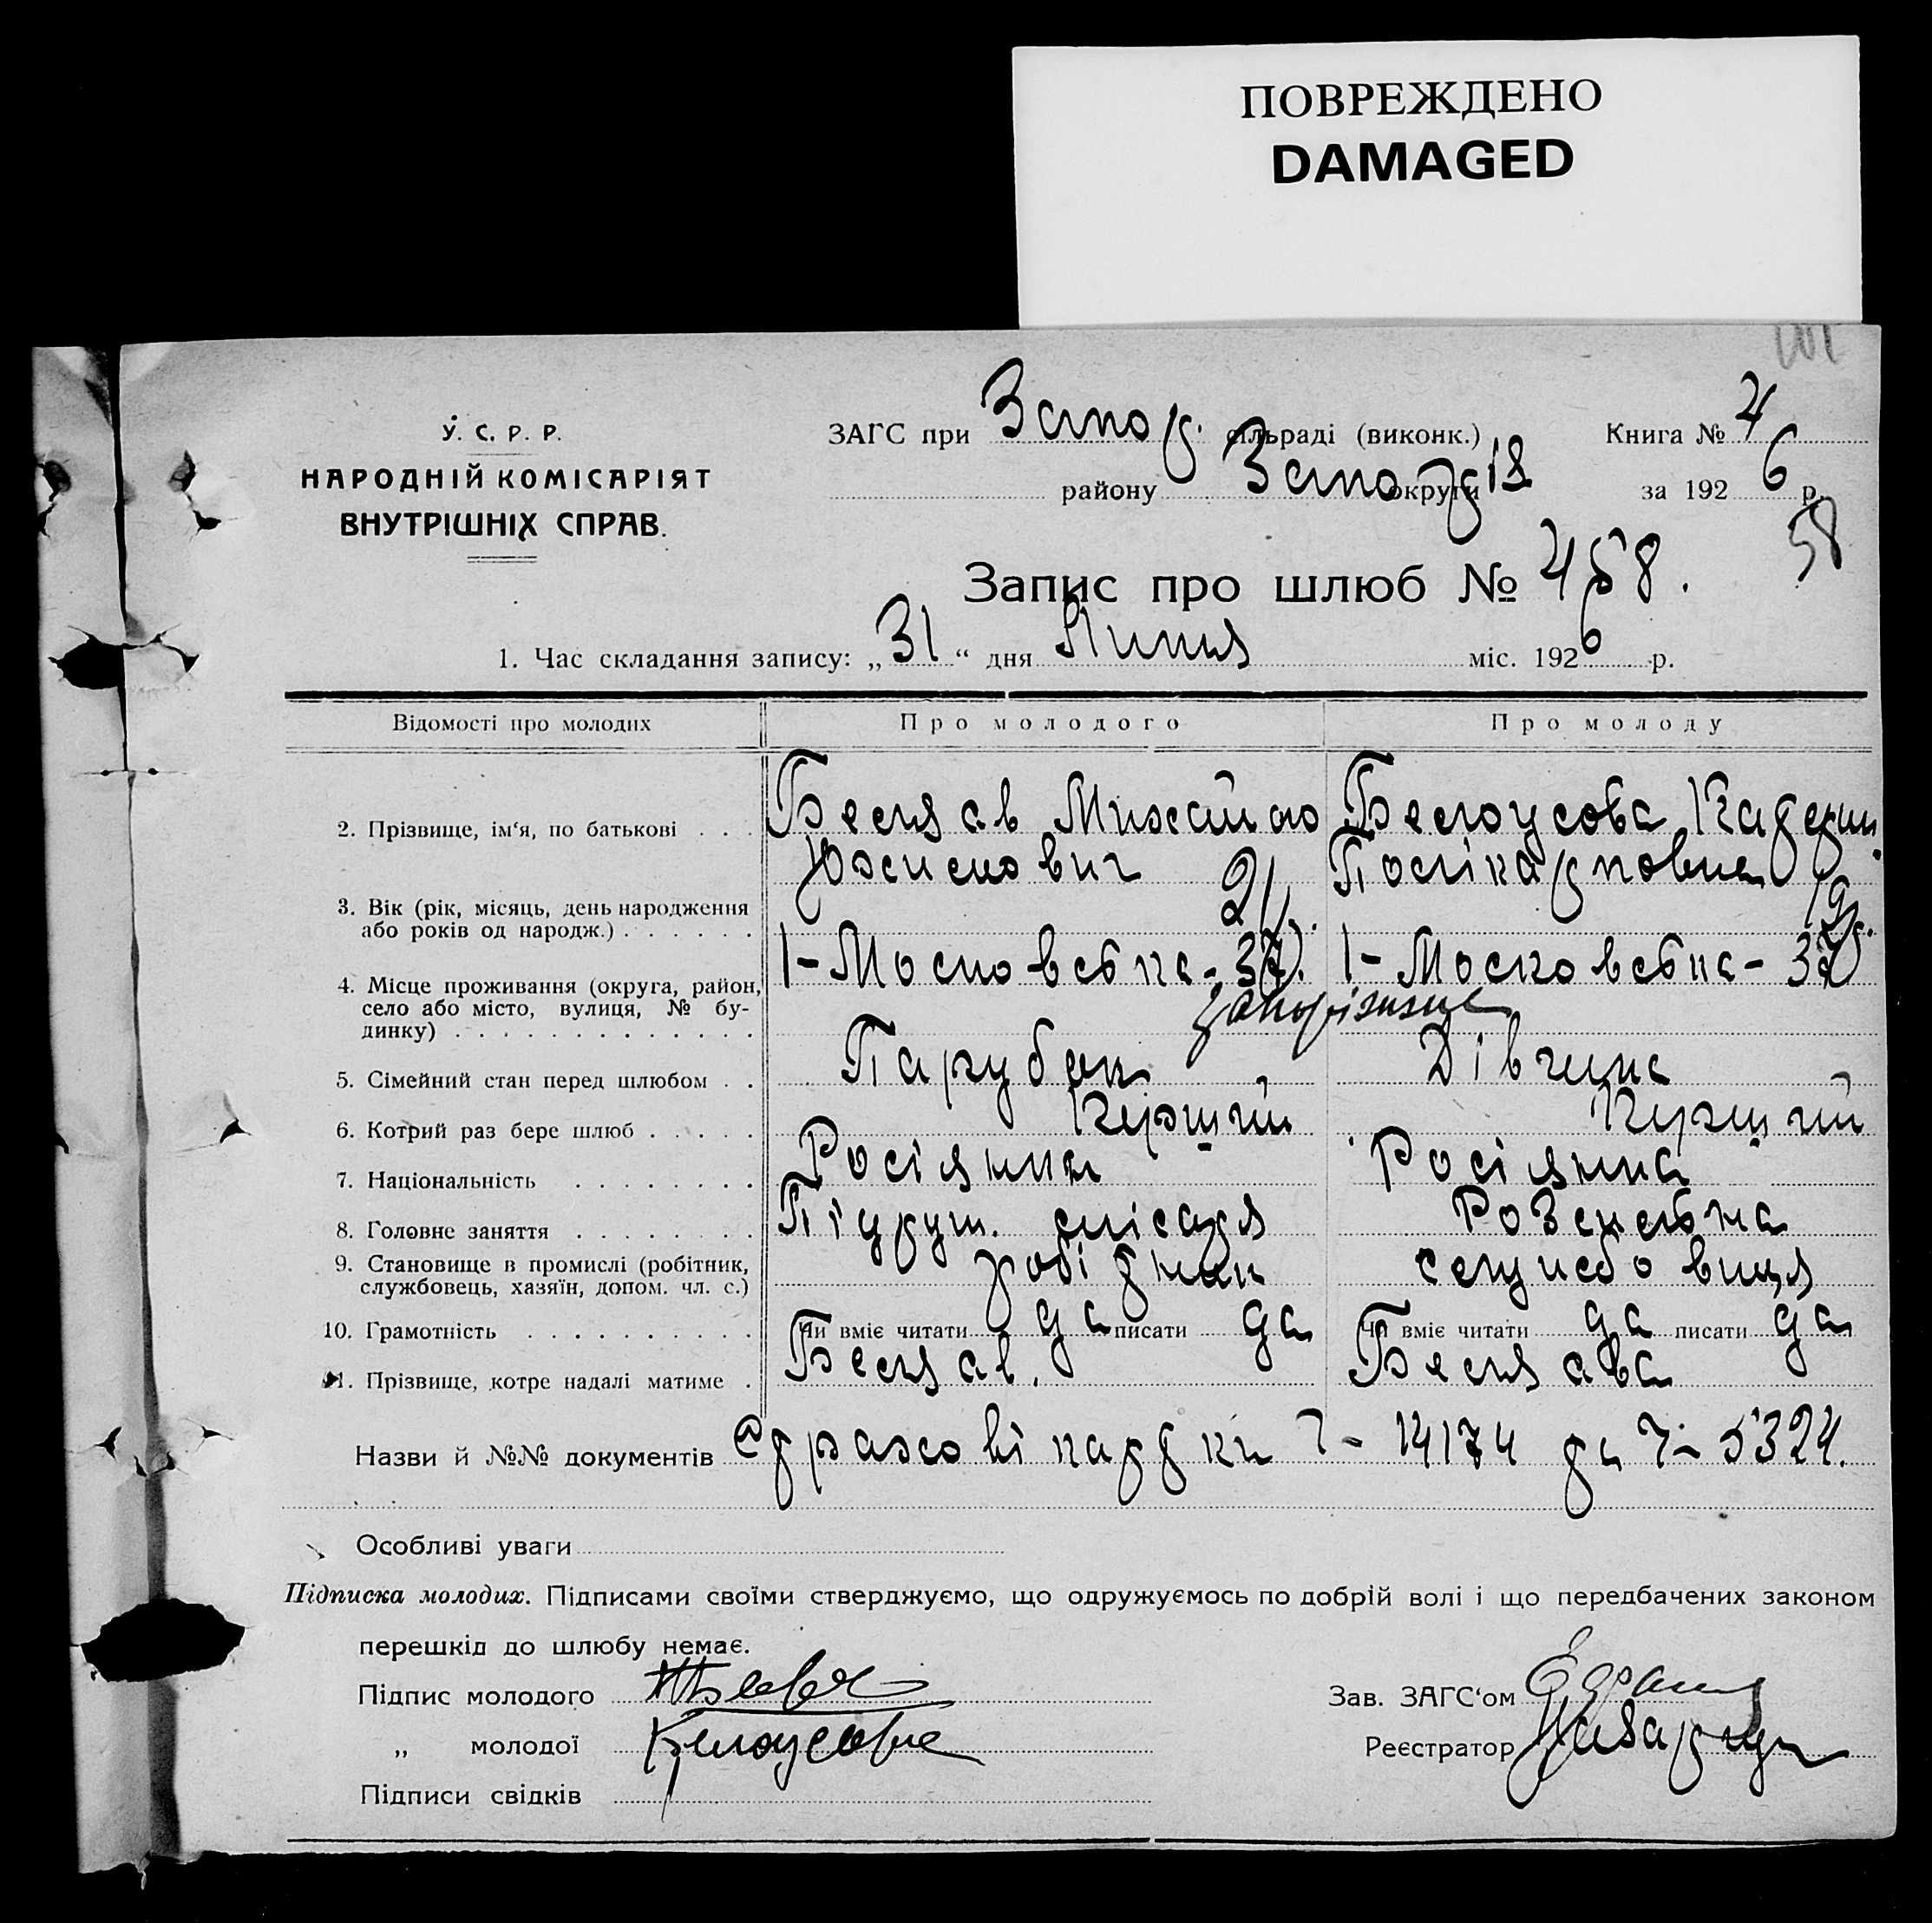 ПОВРЕЖДЕНО
DAMAGED
У. С. Р. Р.
НАРОДНІЙ КОМІСАРІЯТ
ВНУТРІШНІХ СПРАВ.
ЗАГС при Запор. сільраді (виконк.)
Книга № 4
району округи
за 1926 р.
58
Запис про шлюб № 458.
1. Час складання запису: „31“ дня Липня міс. 1926 р.
Відомості про молодих
Про молодого
Про молоду
2. Прізвище, ім‘я, по батькові . . .
Михайло
Белоусова
Полікарповна
3. Вік (рік, місяць, день народження
або років од народж.) . . . . . .
21 р.
19 р.
4. Місце проживання (округа, район,
село або місто, вулиця, № бу-
динку) . . . . . . . . . . . . .
1-Московська-37.
1-Московська-37
Запоріжжє
5. Сімейний стан перед шлюбом . .
Парубок
Дівчина
6. Котрий раз бере шлюб . . . . .
Перший
Перший
7. Національність . . . . . . . .
Росіянин
Росіянка
8. Головне заняття . . . . . . . .
слісаря
9. Становище в промислі (робітник,
службовець, хазяїн, допом. чл. с.)
робітник
службовиця
10. Грамотність . . . . . . . . . .
Чи вміє читати да писати да
Чи вміє читати да писати да
11. Прізвище, котре надалі матиме .
Назви й №№ документів Страхові картки 14174 та 5324.
Особливі уваги
Підписка молодих. Підписами своїми стверджуємо, що одружуємось по добрій волі і що передбачених законом
перешкід до шлюбу немає.
Підпис молодого
Зав. ЗАГС‘ом
„ молодої Белоусова
Реєстратор
Підписи свідків